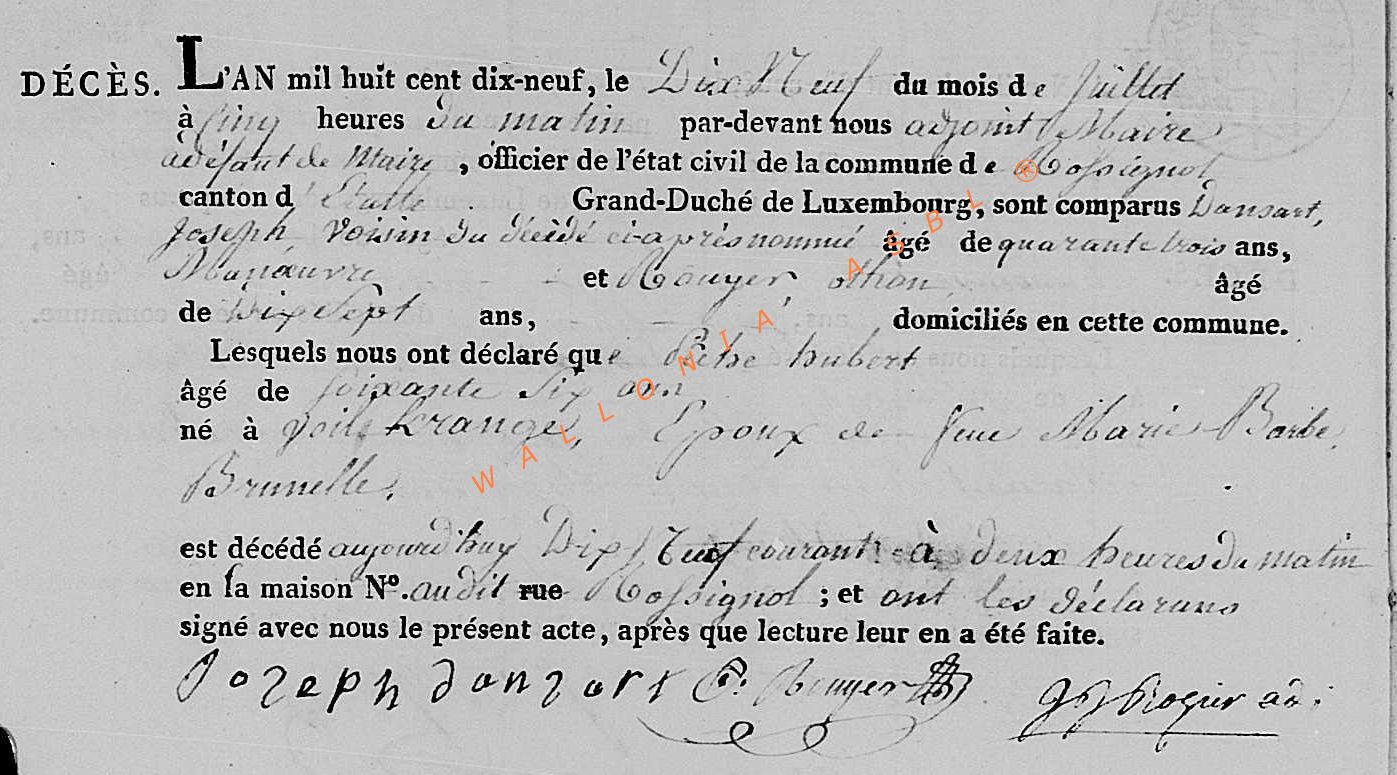 DÉCÈS. L'AN mil huit cent dix-neuf, le Dix Neuf du mois de Juillet
à cinq heures du matin par-devant nous adjoint Maire
adéfaut de Maire, officier de l'état civil de la commune de Rossignol
canton d Grand-Duché de Luxembourg, sont comparus Dansart,
Joseph, Voisin du décédé ci-après nommé âgé de quarante trois ans,
Manœuvre et Rouyer othon, âgé
de Dix Sept ans, domiciliés en cette commune.
Lesquels nous ont déclaré que hubert
âgé de soixante Six ans
né à Epoux de feue Marie Barbe
Brunelle.
est décédé aujourd'huy Dix Neuf courant à deux heures du matin
en sa maison N°. audit rue Rossignol ; et ont les déclarans
signé avec nous le présent acte, après que lecture leur en a été faite.
Jozeph danzart Rouyer
WALLONIA ASBL ®